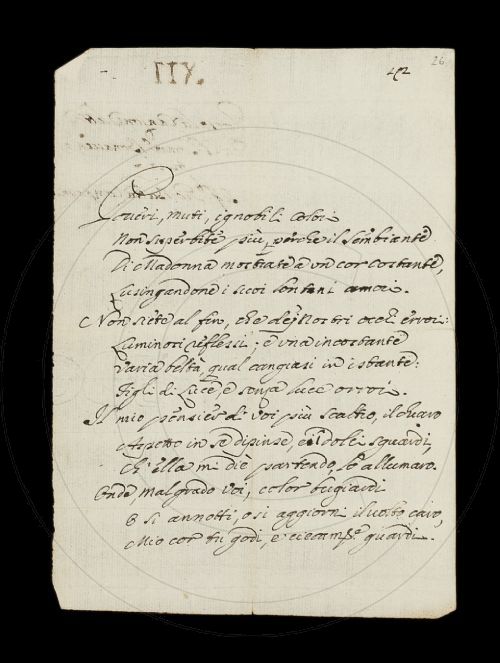 .XII
26
42
Poveri, muti, ignobili colori
Non superbite più, perche il sembiante
Di Madonna mostrate a un cor costante,
Lusingandone i suoi lontani amori.
Non siete al fin, che dej Nostri occhi errori:
Luminosi riflessi; e una incostante
varia beltà, qual cangiasi in istante:
Figli di Luce, e senza luce orrori.
Il mio pensier di voi più scaltro, il chiaro
Aspetto in se dipinse, e i dolci sguardi,
Ch'ella mi diè partendo, e allumaro.
Onde malgrado voi, color bugiardi
O si annotti, o si aggiorni il volto caro,
Mio cor tu godi, e guardi.